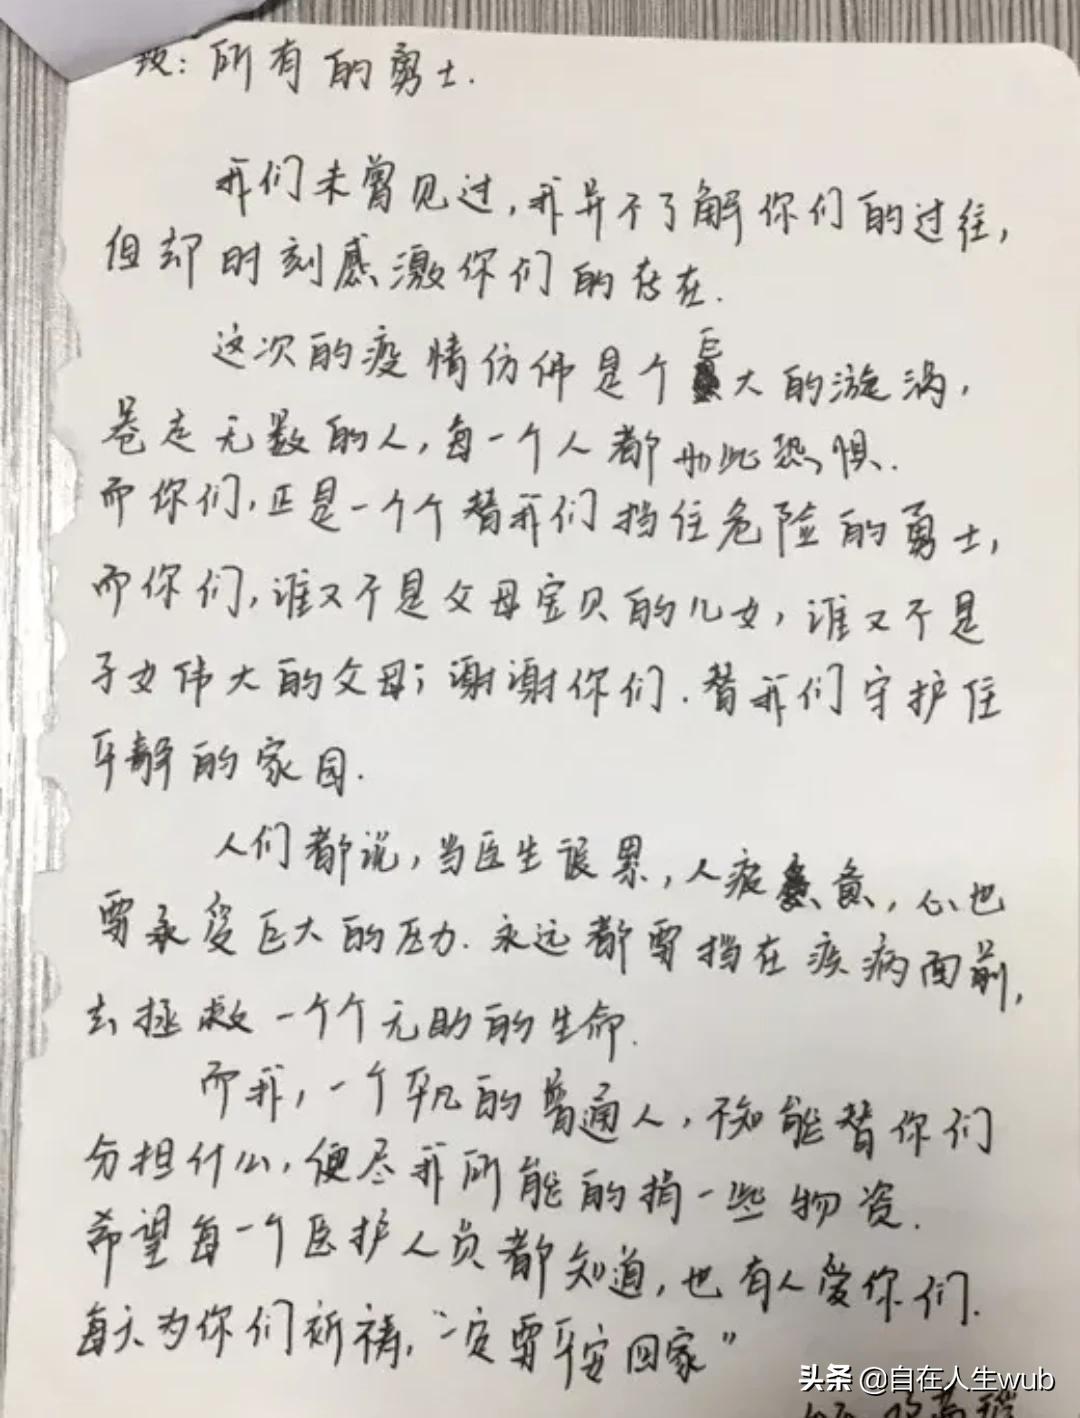 致：所有的勇士.
我们未曾见过,我并不了解你们的过往,
但却时刻感激你们的存在.
这次的疫情仿佛是个巨大的漩涡,
卷走无数的人,每一个人都为此恐惧.
而你们,正是一个个替我们挡住危险的勇士,
而你们,谁又不是父母宝贝的儿女,谁又不是
子女伟大的父母;谢谢你们.替我们守护住
平静的家园.
人们都说,当医生很累,人疲惫,心也
要承受巨大的压力.永远都要挡在疾病面前,
去拯救一个个无助的生命.
而我,一个平凡的普通人,不知能替你们
分担什么,便尽我所能的捐一些物资.
希望每一个医护人员都知道,也有人爱你们.
每天为你们祈祷,"一定要平安回家"
头条 @自在人生wub